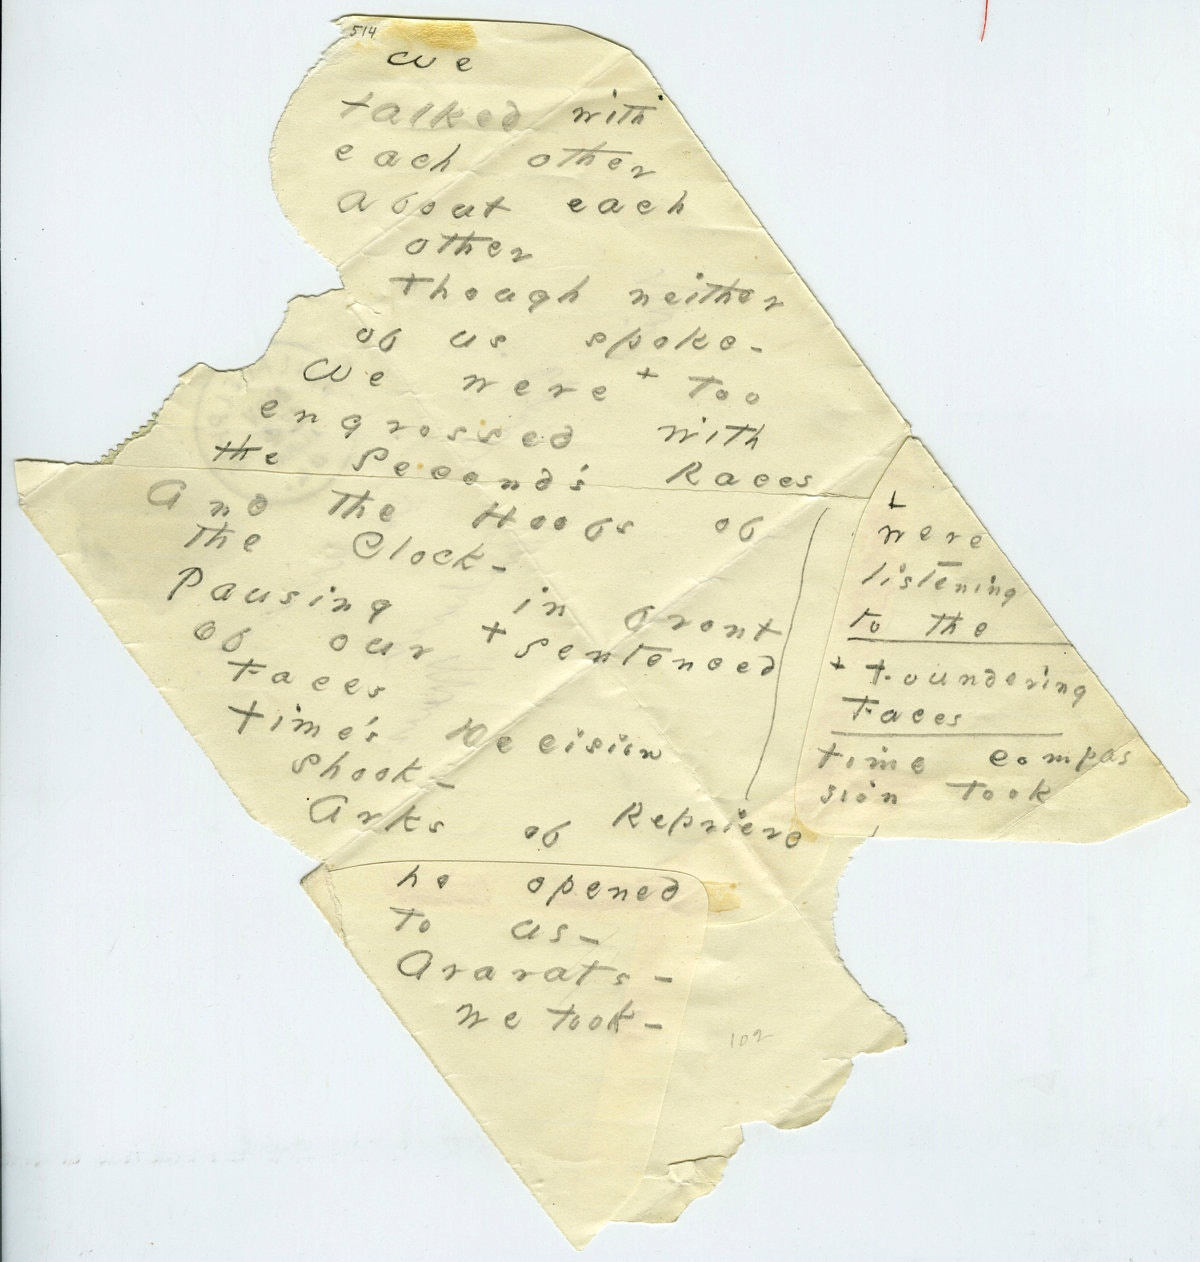 514
We
talked with
each other
about each
other
though neither
of us spoke -
We were + too
engrossed with
the Second's Races
And the Hoofs of
the Clock -
Pausing in front
of our + sentenced
Faces
Time's Decision
shook -
Arks of Reprieve
he opened
to us -
Ararats -
we took -
+
were
listening
to the
+ Foundering
Faces
time compas
sion took
102